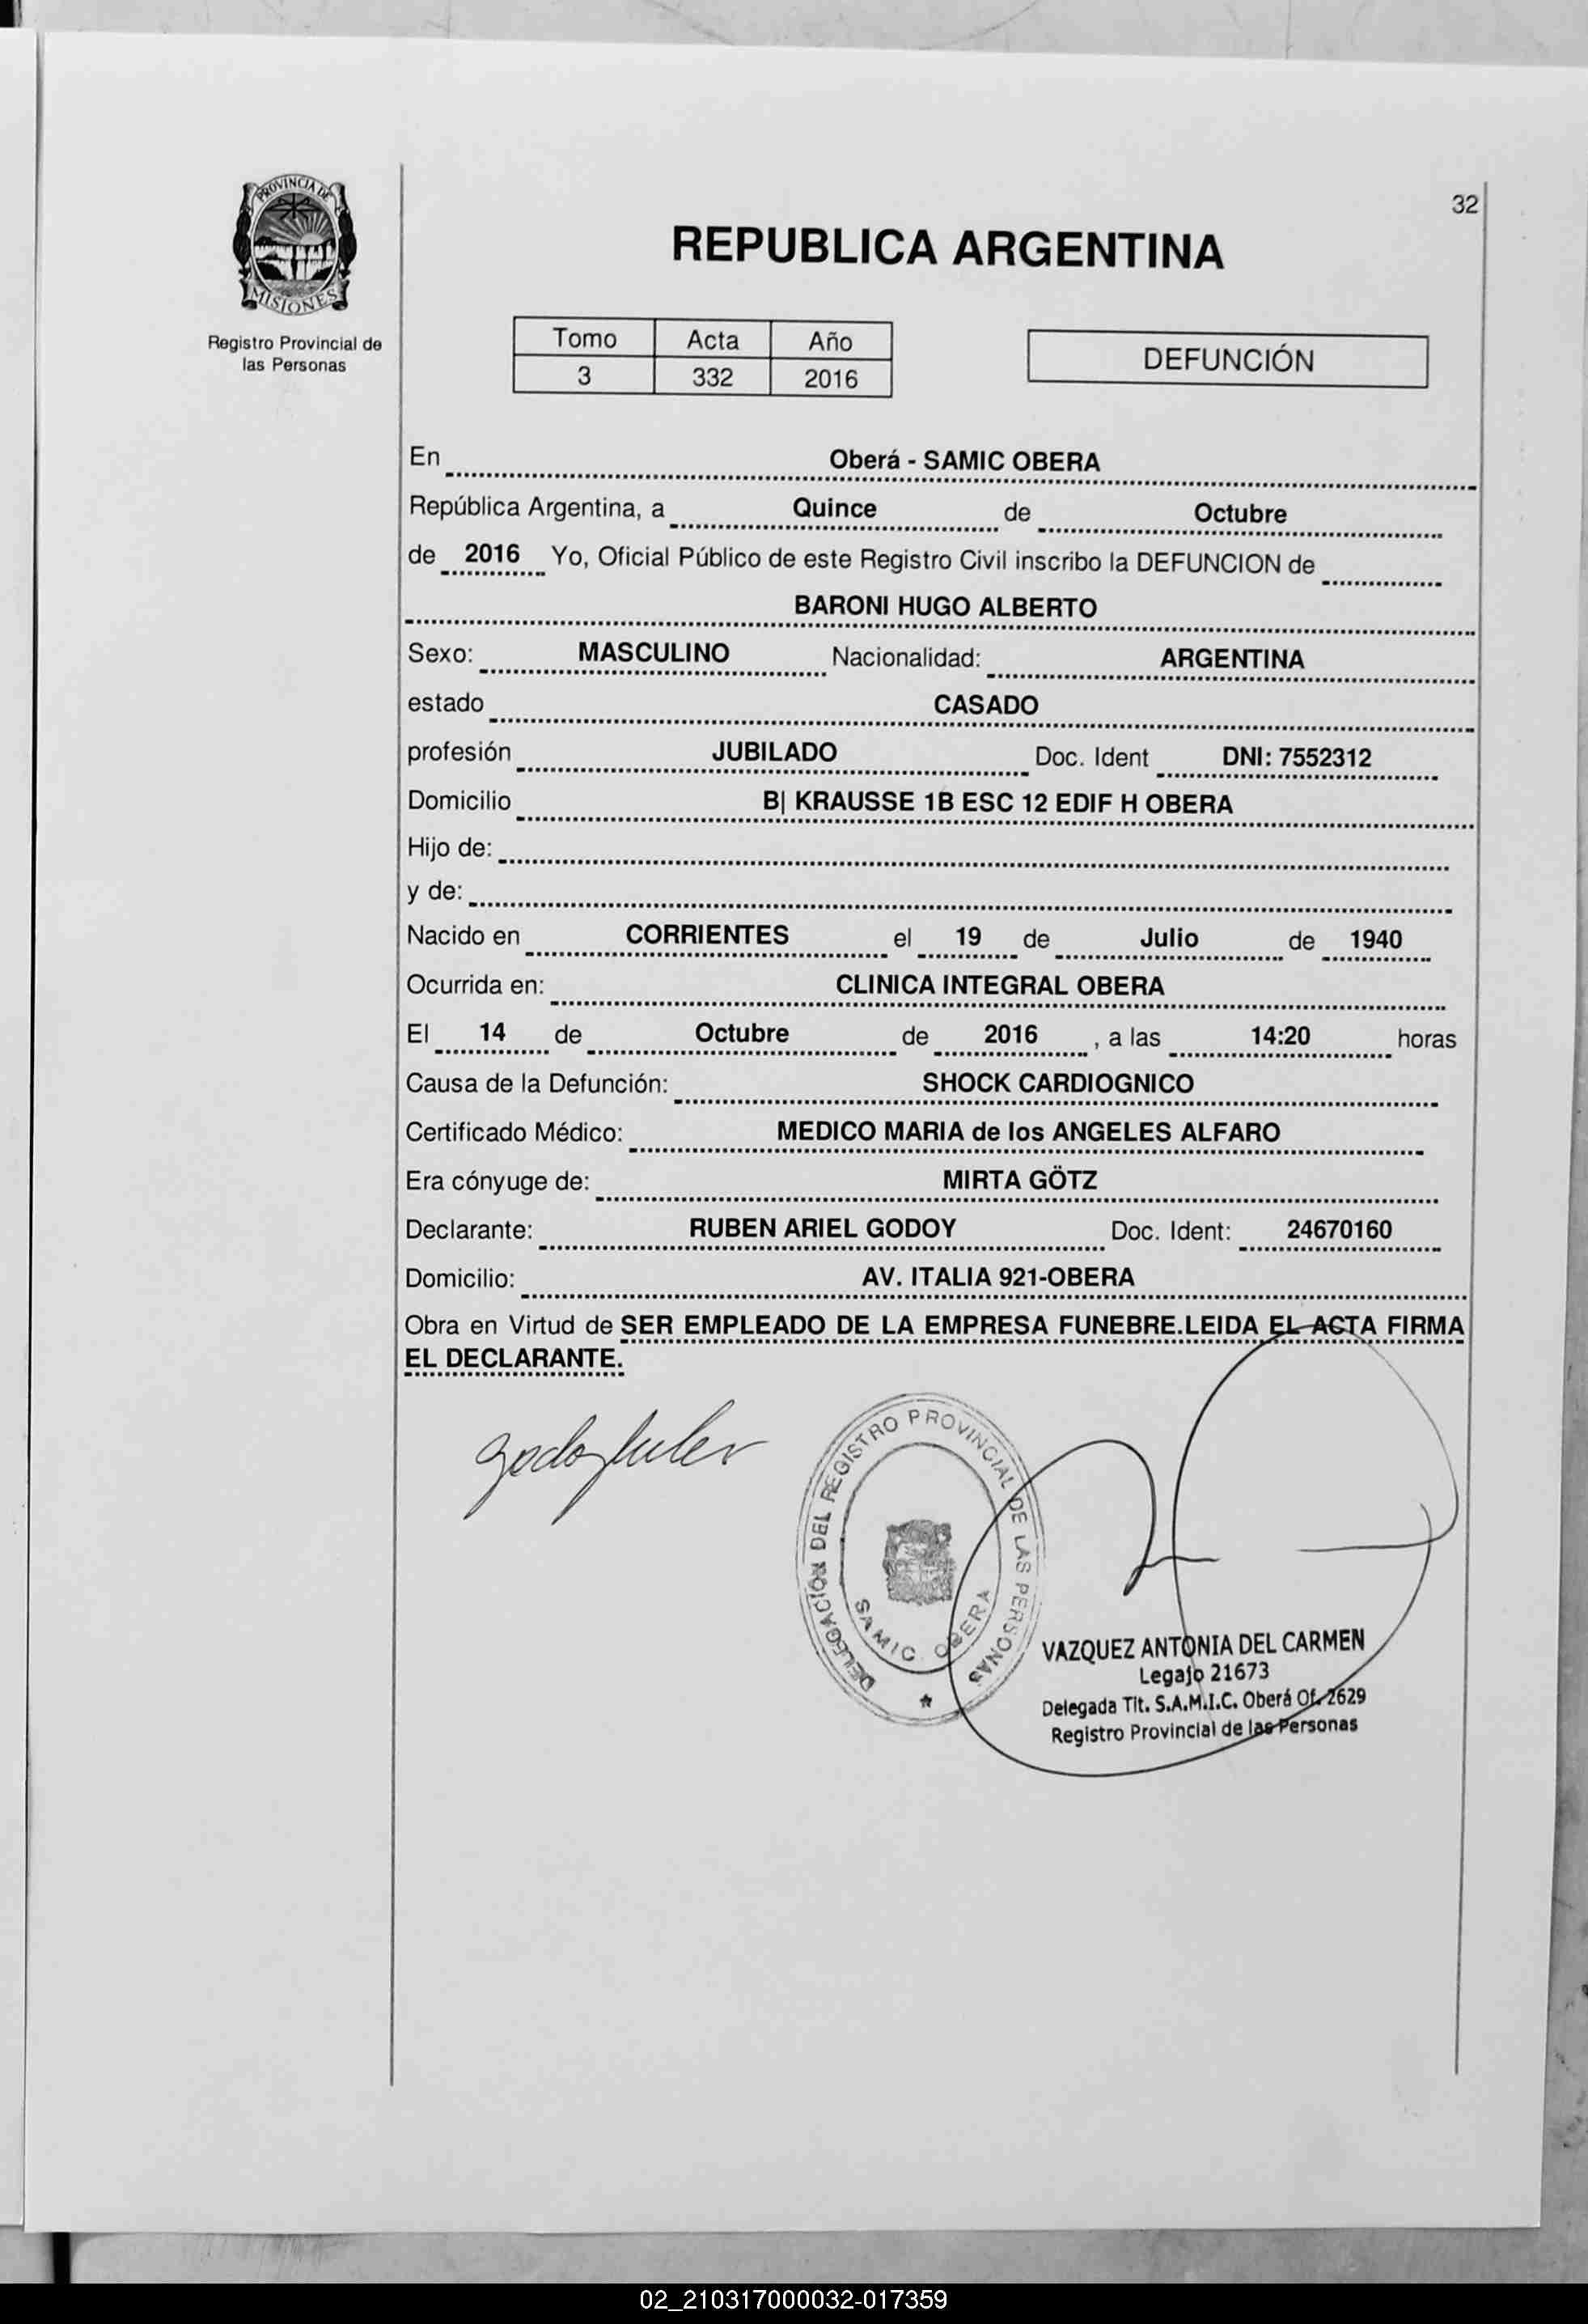 32
PROVINCIA DE
MISIONES
Registro Provincial de
las Personas
REPUBLICA ARGENTINA
Tomo Acta Año
3 332 2016
DEFUNCIÓN
En Oberá - SAMIC OBERA
República Argentina, a Quince de Octubre
de 2016 Yo, Oficial Público de este Registro Civil inscribo la DEFUNCION de
BARONI HUGO ALBERTO
Sexo: MASCULINO Nacionalidad: ARGENTINA
estado CASADO
profesión JUBILADO Doc. Ident DNI: 7552312
Domicilio B| KRAUSSE 1B ESC 12 EDIF H OBERA
Hijo de:
y de:
Nacido en CORRIENTES el 19 de Julio de 1940
Ocurrida en: CLINICA INTEGRAL OBERA
El 14 de Octubre de 2016 , a las 14:20 horas
Causa de la Defunción: SHOCK CARDIOGNICO
Certificado Médico: MEDICO MARIA de los ANGELES ALFARO
Era cónyuge de: MIRTA GÖTZ
Declarante: RUBEN ARIEL GODOY Doc. Ident: 24670160
Domicilio: AV. ITALIA 921-OBERA
Obra en Virtud de SER EMPLEADO DE LA EMPRESA FUNEBRE.LEIDA EL ACTA FIRMA
EL DECLARANTE.
DELEGACIÓN DEL REGISTRO PROVINCIAL DE LAS PERSONAS
SAMIC. OBERA
VAZQUEZ ANTONIA DEL CARMEN
Legajo 21673
Delegada Tit. S.A.M.I.C. Oberá Of. 2629
Registro Provincial de las Personas
02_210317000032-017359